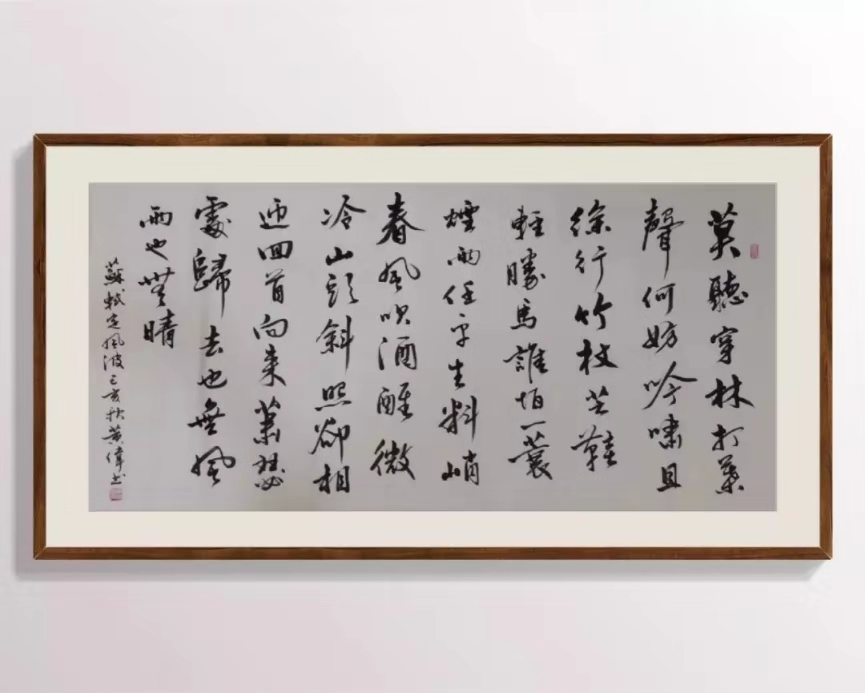 莫聽穿林打葉
聲何妨吟嘯且
徐行竹杖芒鞋
輕勝馬誰怕一蓑
煙雨任平生料峭
春風吹酒醒微
冷山頭斜照卻相
迎回首向來蕭瑟
處歸去也無風
雨也無晴
蘇軾定風波己亥秋黃偉書